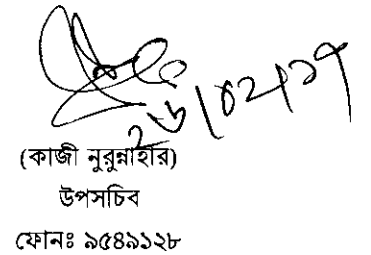 ২৬/০২/১৭
(কাজী নুরুন্নাহার)
উপসচিব
ফোনঃ ৯৫৪৯১২৮